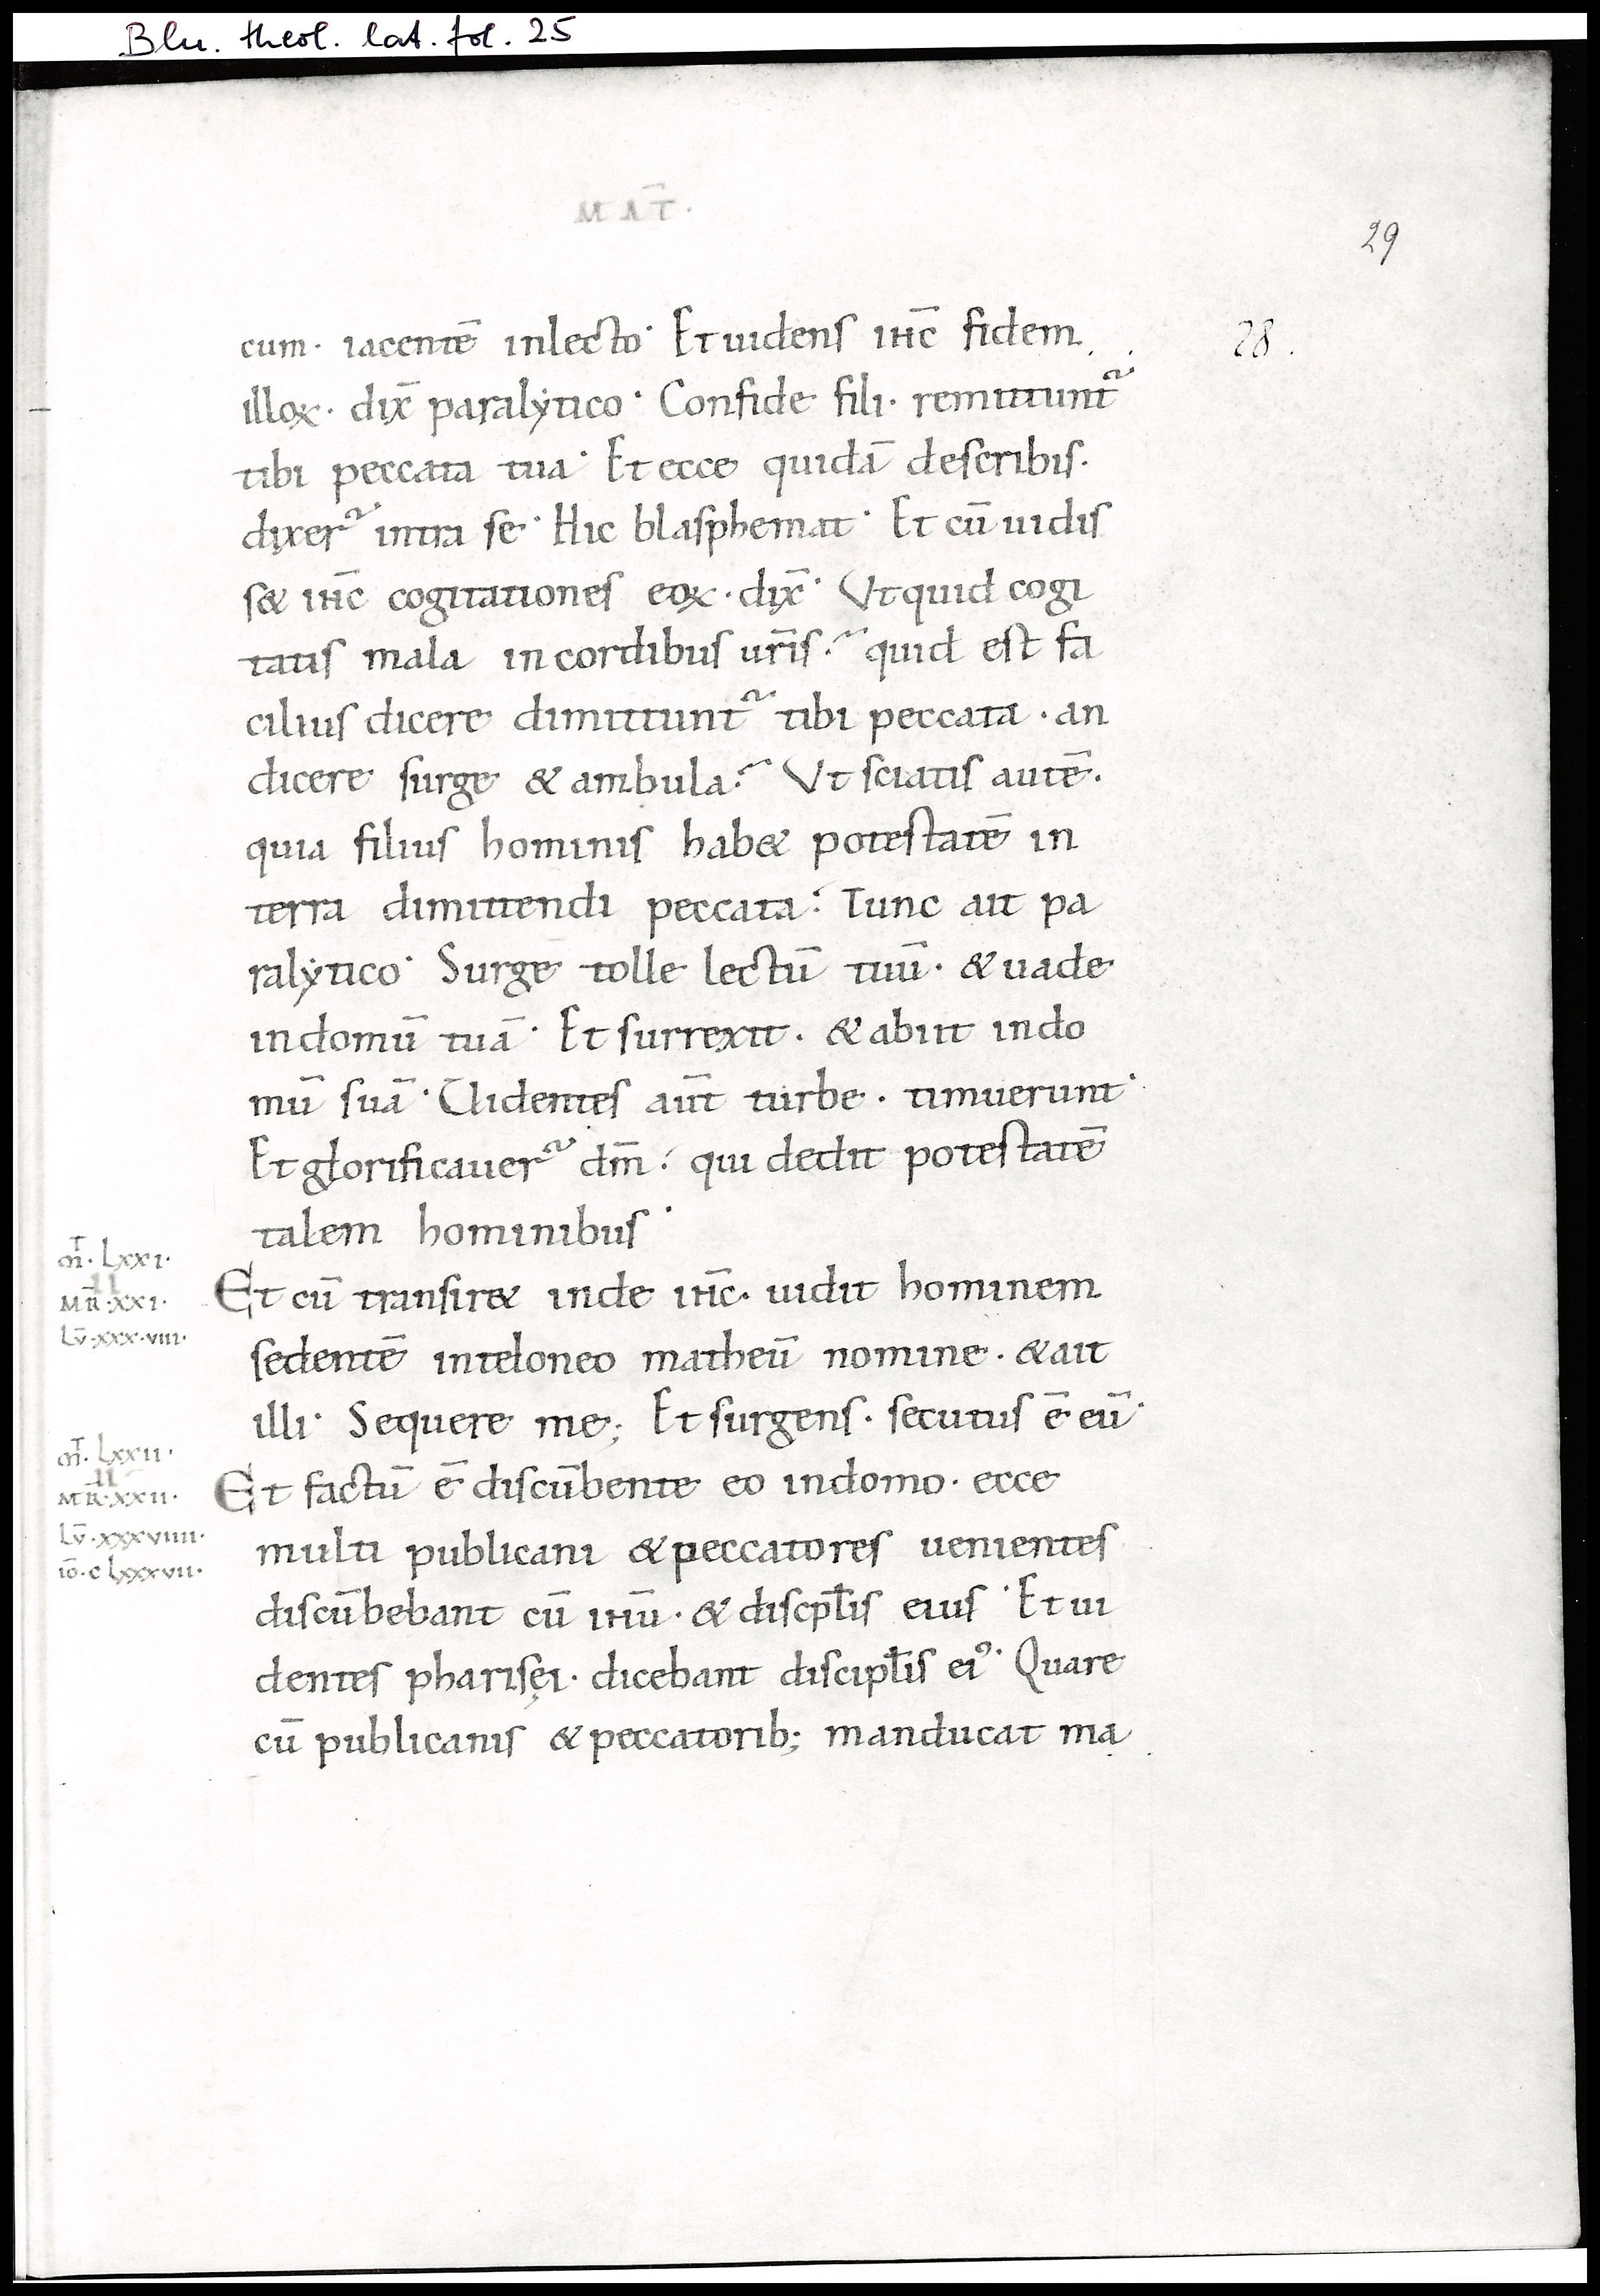 Bln. theol. lat. fol. 25
MAT̄.
29
28.
cum · iacentē inlecto· Et uidens ihc̄ fidem
illoꝝ · dix̄ paralẏtico· Confide fili · remittunt᷑
tibi peccata tua· Et ecce quidā describis·
dixer᷑ intra se· Hic blasphemat· Et cū uidis
s& ihc̄ cogitationes eoꝝ · dix̄· Vtquid cogi
tatis mala incordibus ur̄is? quid est fa
cilius dicere dimittunt᷑ tibi peccata · an
dicere surge & ambula? Vt sciatis autē·
quia filius hominis hab& potestatē in
terra dimittendi peccata: Tunc ait pa
ralẏtico· Surge tolle lectū tuū · & uade
indomū tuā· Et surrexit · & abiit indo
mū suā· Uidentes aūt turbe · timuerunt·
Et glorificauer᷑ dm̄: qui dedit potestatē
talem hominibus·
m̄T · Lxxı·
II
MR̄ · XXI·
Lv̄ · xxx · vııı·
Et cū transir& inde ihc̄· uidit hominem
sedentē inteloneo matheū nomine · & ait
illi· Sequere me; Et surgens · secutus ē eū·
m̄T · Lxxıı·
II
MR̄ · XXII·
Lv̄ · xxxvıııı·
ıō · c Lxxxvıı·
Et factū ē discūbente eo indomo · ecce
multi publicani & peccatores uenientes
discūbebant cū ihū · & discpl̄is eius· Et ui
dentes pharisęi · dicebant discipl̄is eiꝰ· Quare
cū publicanis & peccatorib; manducat ma